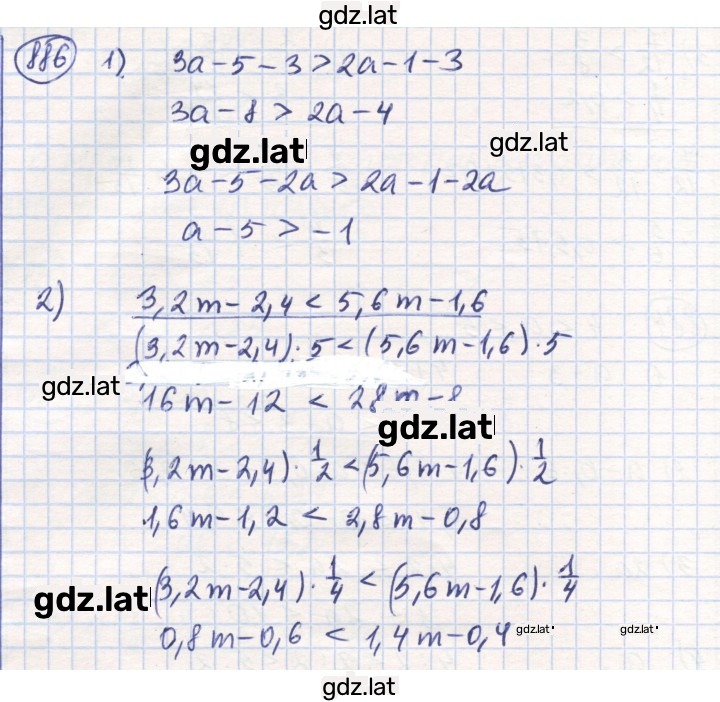 gdz.lat
886 1) 3a-5-3>2a-1-3
3a-8 > 2a-4
gdz.lat
gdz.lat
3a-5-2a > 2a-1-2a
a-5 > -1
2) 3,2m-2,4 < 5,6m-1,6
(3,2m-2,4)·5 < (5,6m-1,6)·5
gdz.lat
16m-12 < 28m-8
gdz.lat
(3,2m-2,4)·1/2 < (5,6m-1,6)·1/2
1,6m-1,2 < 2,8m-0,8
(3,2m-2,4)·1/4 < (5,6m-1,6)·1/4
gdz.lat
0,8m-0,6 < 1,4m-0,4
gdz.lat
gdz.lat
gdz.lat